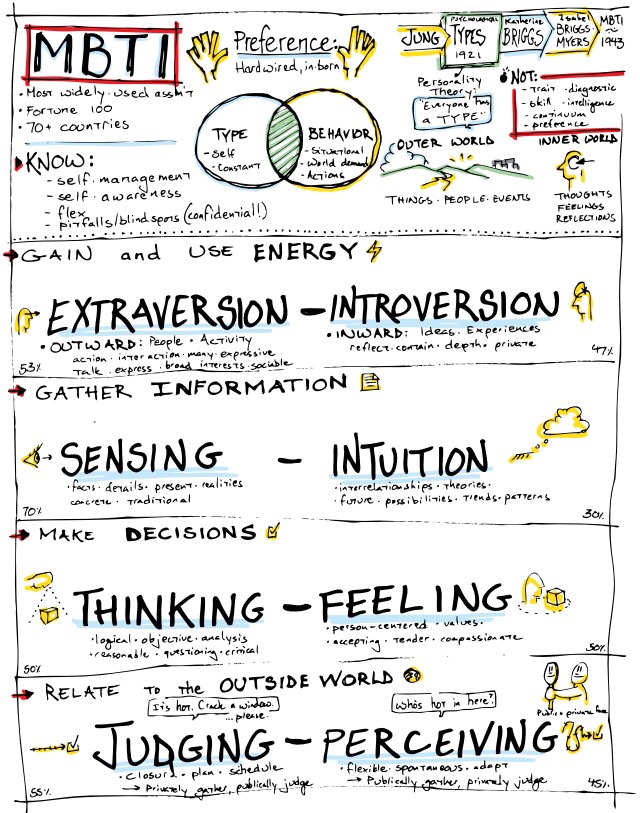 MBTI
• Most widely used ass'mt
• Fortune 100
• 70+ countries
Preference:
Hardwired, in-born
JUNG
PSYCHOLOGICAL
TYPES
1921
Katharine
BRIGGS
Isabel
BRIGGS
MYERS
MBTI
~
1943
Personality
Theory:
"Everyone has
a TYPE"
NOT:
- trait · diagnostic
- skill · intelligence
- continuum
- preference
TYPE
- Self
- Constant
BEHAVIOR
- Situational
- World demand
- Actions
OUTER WORLD
THINGS · PEOPLE · EVENTS
INNER WORLD
THOUGHTS
FEELINGS
REFLECTIONS
KNOW:
- self-management
- self-awareness
- flex
- pitfalls/blindspots (confidential!)
GAIN and USE ENERGY
EXTRAVERSION - INTROVERSION
• OUTWARD: People · Activity
action · interaction · many · expressive
Talk · express · broad interests · sociable
53%
• INWARD: Ideas · Experiences
reflect · contain · depth · private
47%
GATHER INFORMATION
SENSING - INTUITION
· facts · details · present · realities
concrete · traditional
70%
· interrelationships · theories ·
· future · possibilities · trends · patterns
30%
MAKE DECISIONS
THINKING - FEELING
· logical · objective · analysis
· reasonable · questioning · critical
50%
· person-centered · values ·
· accepting · tender · compassionate
50%
RELATE TO the OUTSIDE WORLD
It's hot. Crack a window.
...please.
Who's hot in here?
Public + private face
JUDGING - PERCEIVING
· closure · plan · schedule
→ Privately gather, publically judge
55%
· flexible · spontaneous · adapt
→ Publically gather, privately judge
45%